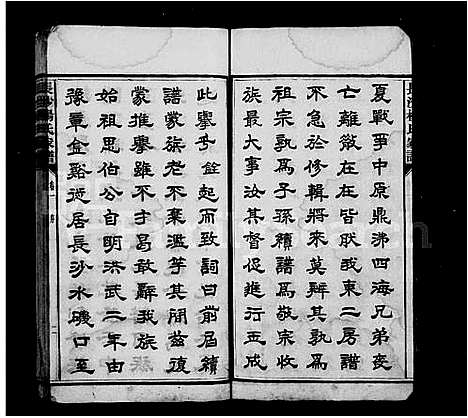 長沙楊氏家譜
夏戰爭中原鼎沸四海兄弟喪
亡離散在在皆然我東二房譜
不急於修輯將來莫辨其孰為
祖宗孰為子孫續譜為敬宗收
族最大事汝其督促進行玉成
此舉銓起而致詞曰前屆續
譜蒙族老不棄濫竽其間茲復
蒙推舉雖不才曷敢辭我族
始祖思伯公自明洪武二年由
豫章金谿徙居長沙水磯口至
長沙楊氏家譜